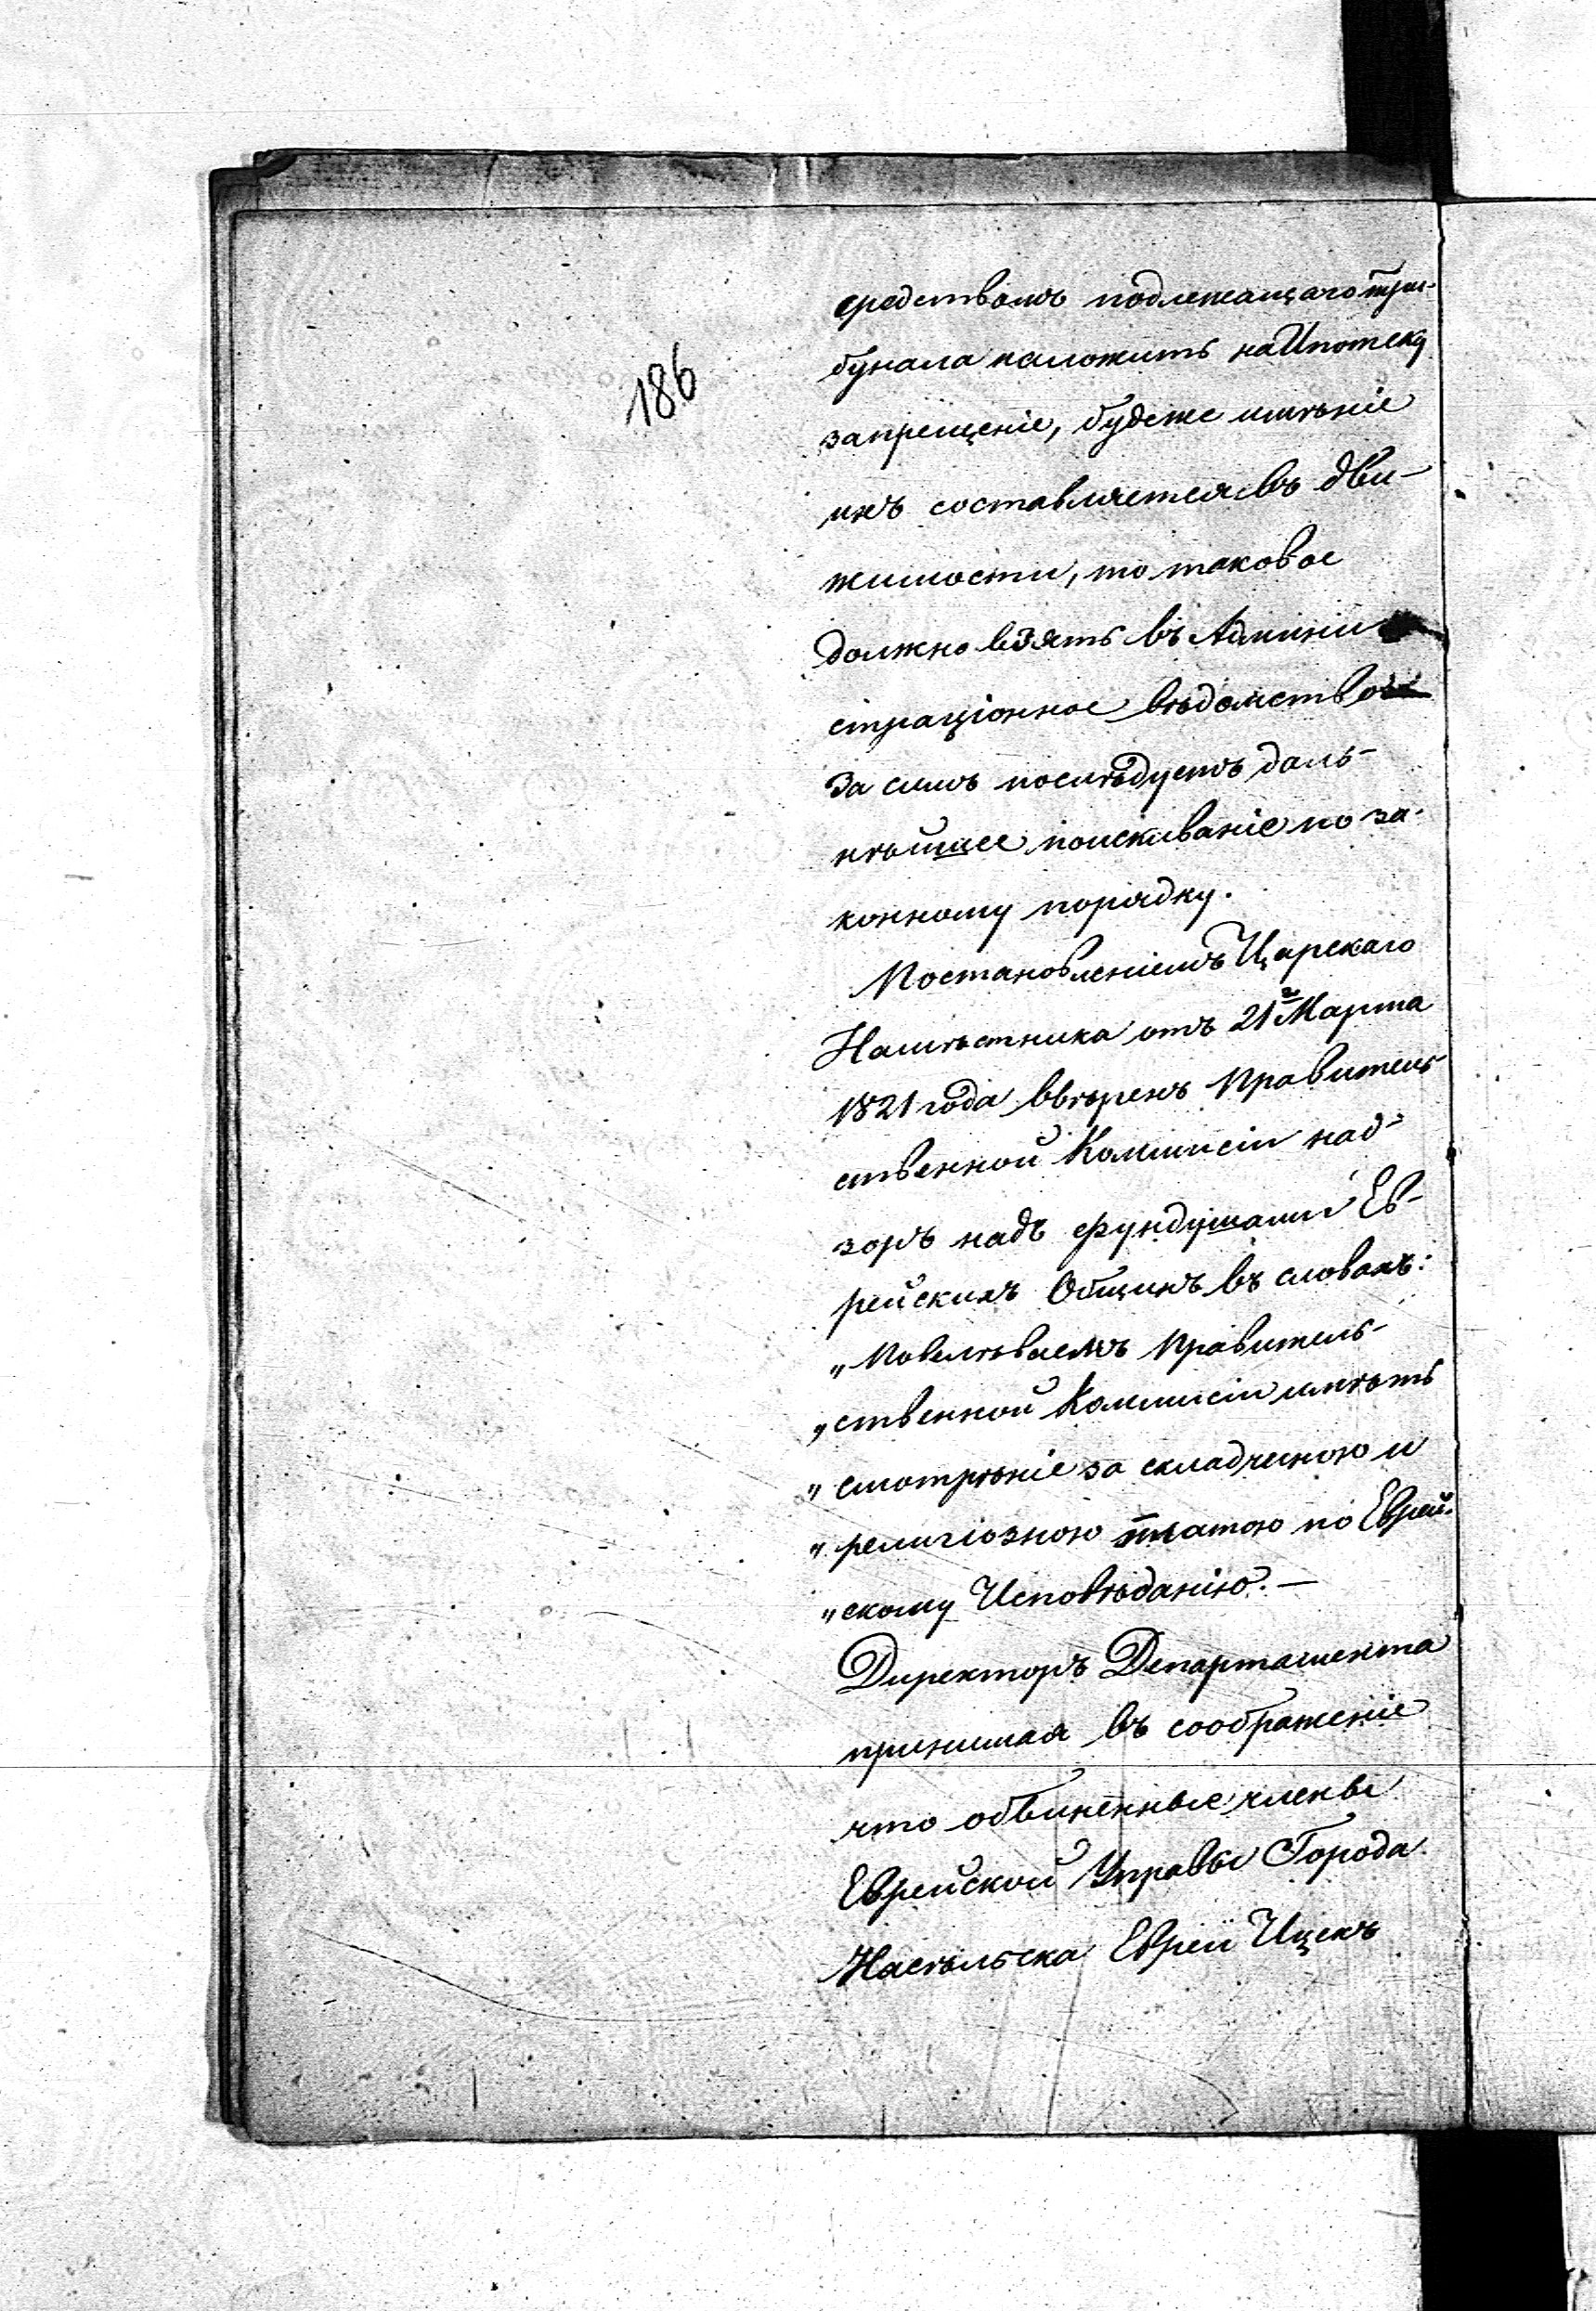 186
средствомъ подлежащаго Три-
бунала наложить на Ипотеку
запрещеніе, будеже имѣніе
ихъ составляется въ дви-
жимости, то таковое
должно взять въ Админи
страціонное вѣдомство
За симъ послѣдуетъ даль-
нѣйшее поискиваніе по за-
конному порядку.
Постановленіемъ Царскаго
Намѣстника отъ 21го Марта
1821 года ввѣренъ Правитель
ственной Коммисіи над-
зоръ надъ фундушами Ев-
рейскихъ Общинъ въ словахъ:
„Повелѣваемъ Правитель-
„ственной Коммисіи имѣть
„смотрѣніе за складочною и
„религіозною платою по Еврей-
„скому Исповѣданію. —
Директоръ Департамента
принимая въ соображеніе
что обвиненные члены
Еврейской Управы Города
Насѣльска Евреи Ицекъ